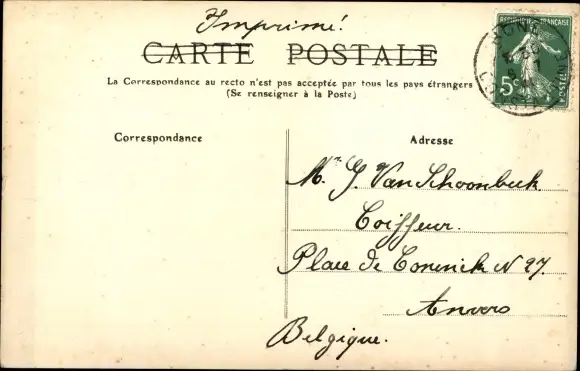 Imprimé!
CARTE POSTALE
REPUBLIQUE FRANÇAISE
5c
POSTES
La Correspondance au recto n'est pas acceptée par tous les pays étrangers
(Se renseigner à la Poste)
Correspondance
Adresse
Mr. J. Van Schoonbeek.
Coiffeur.
Place de Coninck N 27.
Anvers
Belgique.